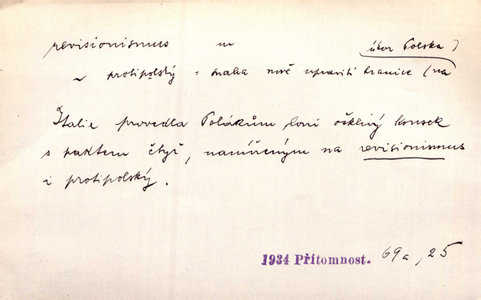 revisionismus m
(úkor Polska)
~ protipolský = snaha nově upraviti hranice (na
Italie provedla Polákům loni ošklivý kousek
s paktem čtyř, namířeným na revisionismus
i protipolský.
1934 Přítomnost. 69a, 25